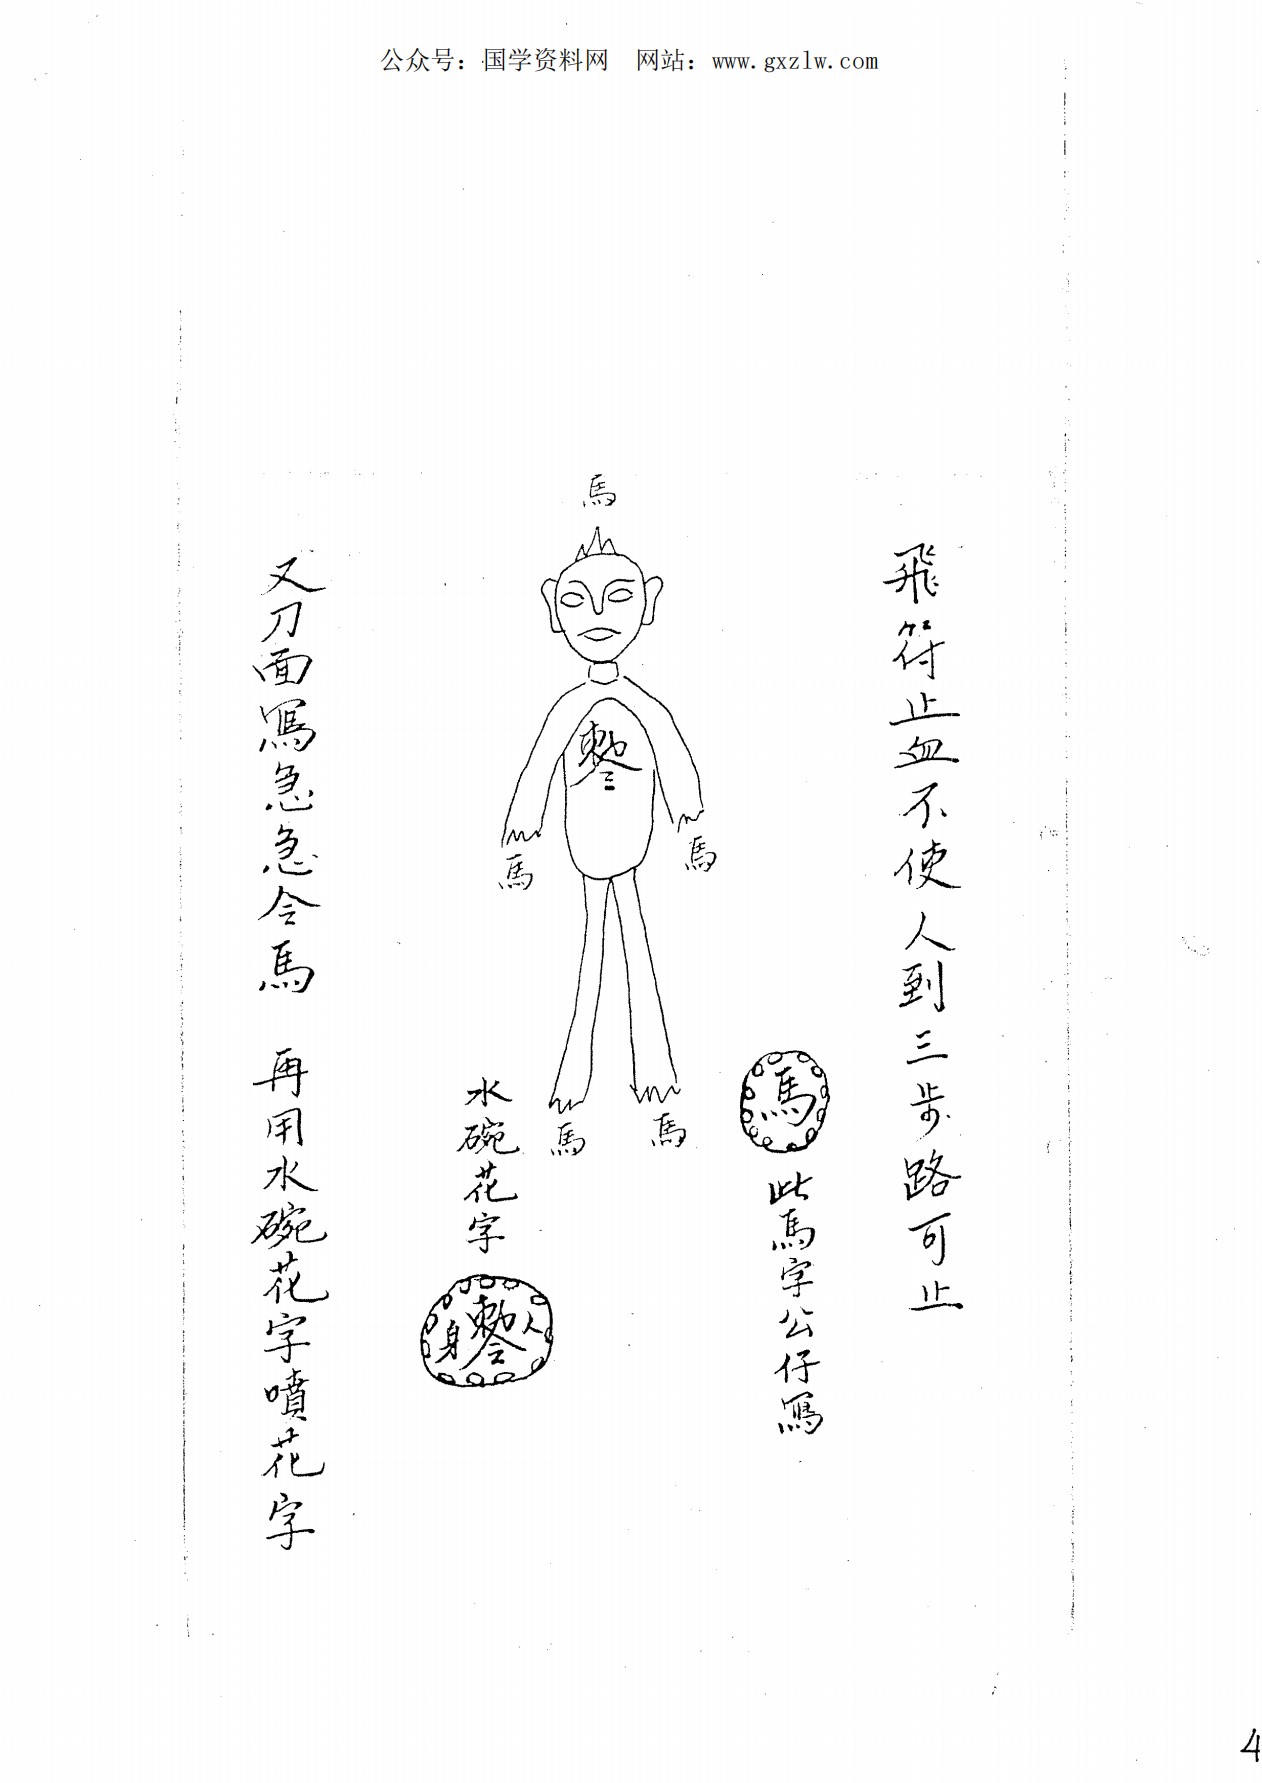 公众号：国学资料网　网站：www.gxzlw.com
飛符止血不使人到三步路可止
馬
此馬字公仔寫
馬
馬
馬
馬
馬
水碗花字
身 人
又刀面寫急急令馬　再用水碗花字噴花字
4